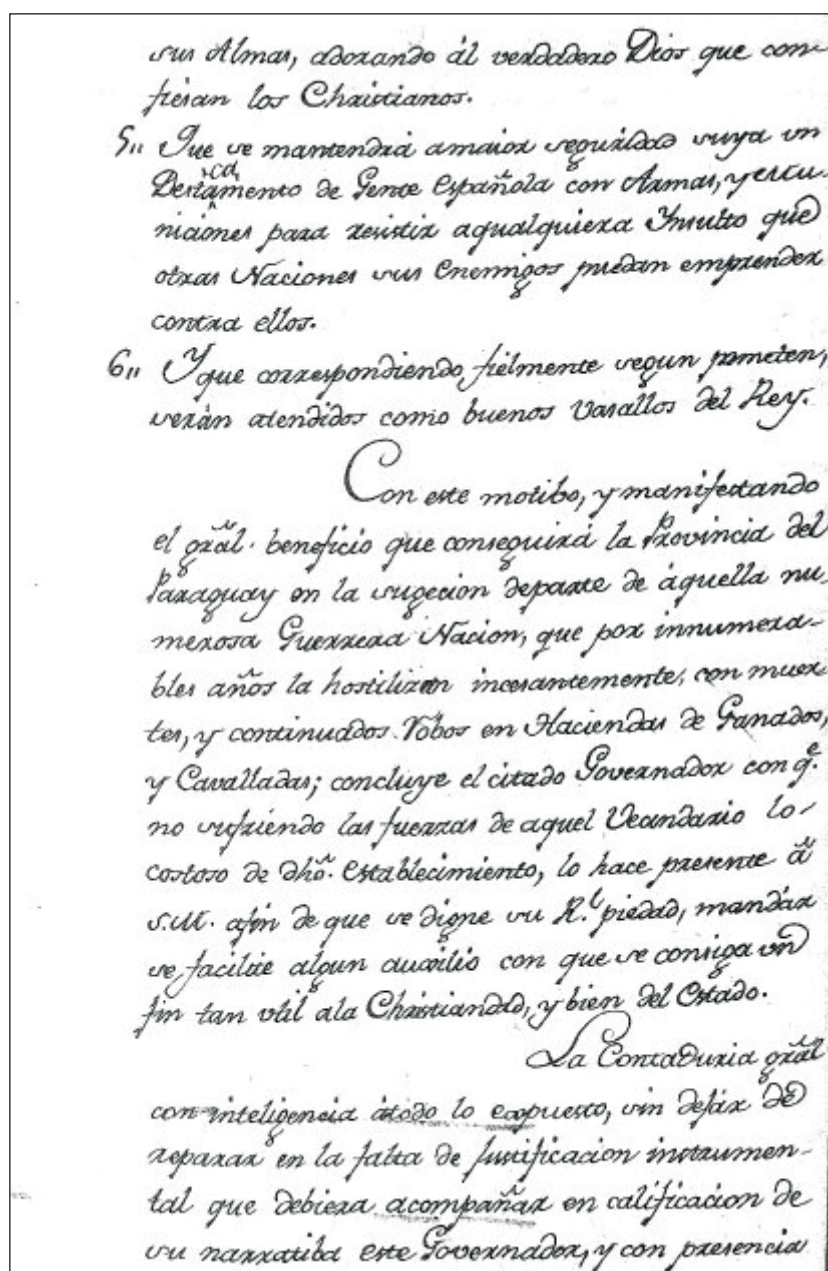 sus Almas, adorando ál verdadero Dios que con-
fiesan los Christianos.
5,, Que se mantendrá amaior seguridad suya un
Destacamento de Gente Española con Armas, y Mu-
niciones para resistir aqualquiera Ynsulto que
otras Naciones sus Enemigos puedan emprender
contra ellos.
6,, Y que correspondiendo fielmente segun prometen,
serán atendidos como buenos Vasallos del Rey.
Con este motibo, y manifestando
el gral. beneficio que conseguirá la Provincia del
Paraguay en la sugecion departe de áquella nu-
merosa Guerrera Nacion, que por innumera-
bles años la hostilizan incesantemente, con muer-
tes, y continuados Robos en Haciendas de Ganados,
y Cavalladas; concluye el citado Governador con qe.
no sufriendo las fuerzas de aquel Vecindario lo
costoso de dho. Establecimiento, lo hace presente á
S.M. afin de que se digne su Rl. piedad, mandár
se facilite algun auxilio con que se consiga un
fin tan vtil ala Christiandad, y bien del Estado.
La Contaduria gral
con inteligencia átodo lo expuesto, sin dejár de
reparar en la falta de justificacion instrumen-
tal que debiera acompañar en calificacion de
su narratiba este Governador, y con presencia